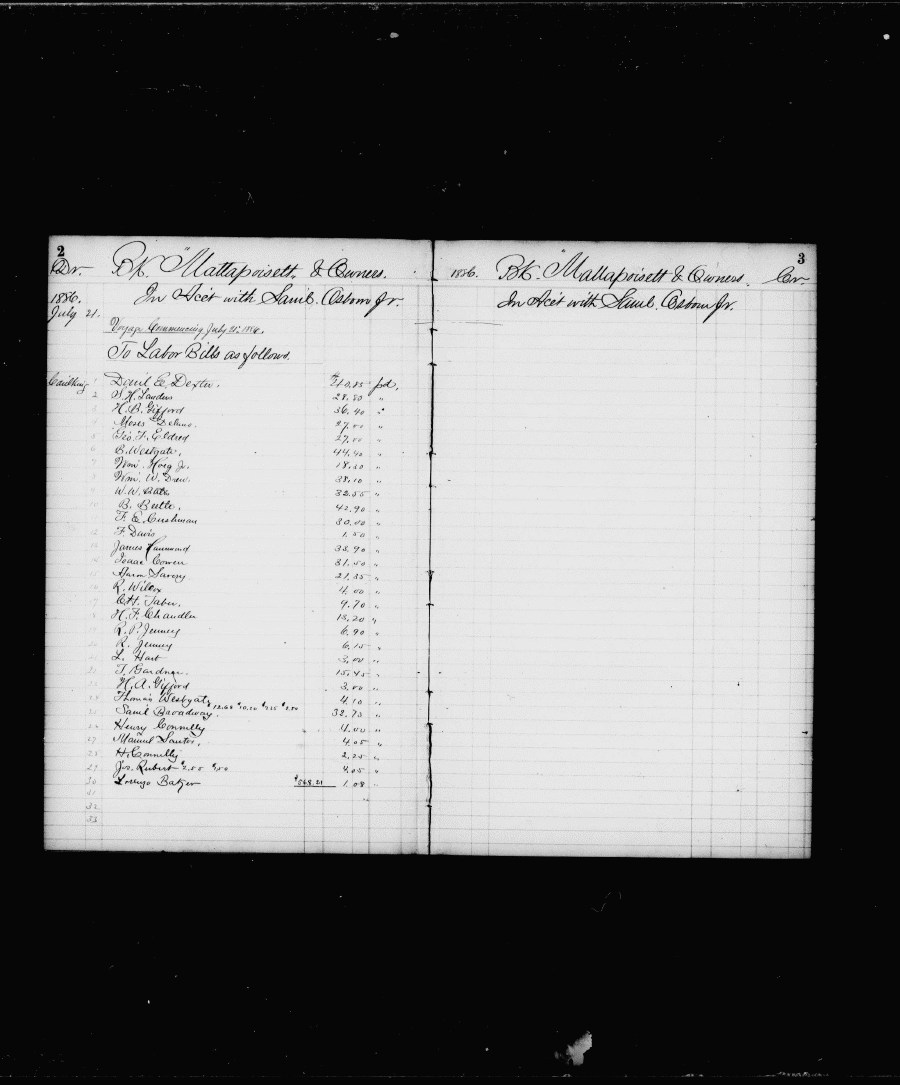 2
Dr. Bk. "Mattapoisett, & Owners.
1886. In Acct with Saml. Osborn Jr.
July 21.
Voyage Commencing July 21st 1886.
To Labor Bills as follows.
Caulking 1 Daniel E. Dexter. pd.
2 28.80 "
3 H. B. Gifford 36.40 "
4 Moses Delano. 27.00 "
5 Geo. F. Eldred 27.00 "
6 B. Westgate. 44.40 "
7 Wm. Jr. "
Wm. W. Drew. 38.10 "
9 W. W. Bates 32.55 "
10 B. 42.90 "
F. E. Cushman 30.00 "
12 F. Davis 1.50 "
James Hammond 33.90 "
Isaac Cowen 31.50 "
15 Savery 21.35 "
16 R. Wilcox 4.00 "
17 C. H. Taber. 9.70 "
H. F. Chandler 18.20 "
R. P. Jenney 6.90 "
20 R. Jenney 6.15 "
L. Hart 3.00 "
T. Gardner 15.45 "
H. A. Gifford 3.00 "
Thomas Westgate 4.10 "
25 Saml Broadway. 32.73 "
Henry Connelly 4.00 "
27 Manuel Santos. 4.05 "
28 H. Connelly 2.25 "
29 Jos. Rubert $2.55 $1.50 4.05 "
30 Lorenzo Baker $568.21 1.08 "
31
32
33
3
1886. Bk. "Mattapoisett & Owners. Cr.
In Acct with Saml. Osborn Jr.